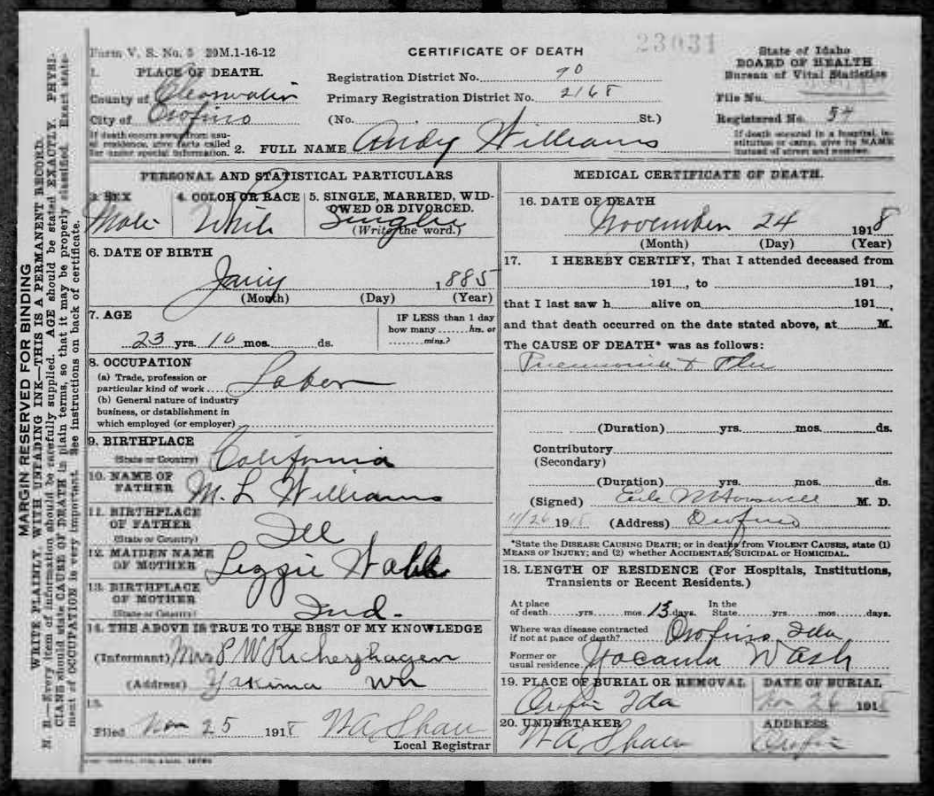 Form V. S. No. 5 20M.1-16-12
CERTIFICATE OF DEATH
23031
State of Idaho
BOARD OF HEALTH
Bureau of Vital Statistics
1. PLACE OF DEATH.
County of Clearwater
City of Orofino
If death occurs away from usual residence, give facts called for under special information.
Registration District No. 90
Primary Registration District No. 2168
(No. St.)
File No.
Registered No. 54
If death occured in a hospital, institution or camp, give its NAME instead of street and number.
2. FULL NAME Andy Williams
PERSONAL AND STATISTICAL PARTICULARS
3. SEX
Male
4. COLOR OR RACE
White
5. SINGLE, MARRIED, WIDOWED OR DIVORCED.
Single
(Write the word.)
6. DATE OF BIRTH
1885
(Month) (Day) (Year)
7. AGE
23 yrs. 10 mos. ds.
IF LESS than 1 day
how many hrs. or
mins.?
8. OCCUPATION
(a) Trade, profession or
particular kind of work Labor
(b) General nature of industry
business, or dstablishment in
which employed (or employer)
9. BIRTHPLACE
(State or Country) California
10. NAME OF
FATHER M. L Williams
11. BIRTHPLACE
OF FATHER
(State or Country) Ill
12. MAIDEN NAME
OF MOTHER Lizzie
13. BIRTHPLACE
OF MOTHER
(State or Country) Ind.
14. THE ABOVE IS TRUE TO THE BEST OF MY KNOWLEDGE
(Informant) Mrs P W
(Address) Yakima Wn
15.
Filed Nov 25 1918 W A Shaw
Local Registrar
MEDICAL CERTIFICATE OF DEATH.
16. DATE OF DEATH
November 24 1918
(Month) (Day) (Year)
17. I HEREBY CERTIFY, That I attended deceased from
191 , to 191 ,
that I last saw h alive on 191 ,
and that death occurred on the date stated above, at M.
The CAUSE OF DEATH* was as follows:
Pneumonia + Flu
(Duration) yrs. mos. ds.
Contributory
(Secondary)
(Duration) yrs. mos. ds.
(Signed) M. D.
11/26 1918 (Address) Orofino
*State the DISEASE CAUSING DEATH; or in deaths from VIOLENT CAUSES, state (1)
MEANS OF INJURY; and (2) whether ACCIDENTAL, SUICIDAL or HOMICIDAL.
18. LENGTH OF RESIDENCE (For Hospitals, Institutions,
Transients or Recent Residents.)
At place
of death yrs. mos. 15 days.
In the
State yrs. mos. days.
Where was disease contracted
if not at place of death? Orofino Ida
Former or
usual residence. Wash
19. PLACE OF BURIAL OR REMOVAL
Orofino Ida
DATE OF BURIAL
Nov 26 1918
20. UNDERTAKER
W A Shaw
ADDRESS
Orofino
MARGIN RESERVED FOR BINDING
WRITE PLAINLY, WITH UNFADING INK—THIS IS A PERMANENT RECORD.
N. B.—Every item of information should be carefully supplied. AGE should be stated EXACTLY. PHYSI-
CIANS should state CAUSE OF DEATH in plain terms, so that it may be properly classified. Exact state-
ment of OCCUPATION is very important. See instructions on back of certificate.